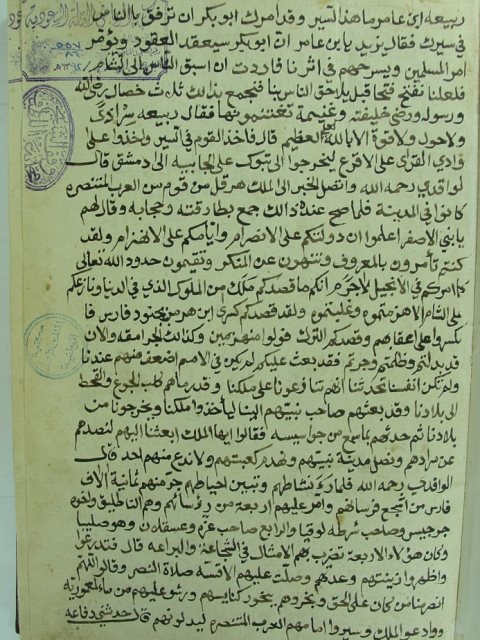 ربيعه ابن عامر ما هذا السير وقد امرك ابو بكر ان ترفق بالناس
في سيرك فقال يزيد يا بن عامر ان ابو بكر سيعقد العقود ويؤمر
امر المسلمين ويسرحهم في اثرنا فاردت ان اسبق الناس الى الشام
فلعلنا نفتح فتحا قبل يلاحق الناس بنا فنجمع بذالك ثلاث خصال رضى الله
ورسوله ورضى خليفته وغنيمة نغتنمونها فقال ربيعه سر اذا
ولا حول ولا قوة الا بالله العظيم قال فاخذ القوم في السير واخذوا على
وادي القرى على الاقرع ليخرجوا الى تبوك على الجابيه الى دمشق قال
لواقدي رحمه الله واتصل الخبر الى الملك هرقل من قوم من العرب المتنصره
كانوا في المدينة فلما صح عنده ذالك جمع بطارقته وحجابه وقال لهم
يا بني الاصفر اعلموا ان دولتكم على الانصرام وايامكم على الانهزام ولقد
كنتم تأمرون بالمعروف وتنهون عن المنكر وتقيمون حدود الله تعالى
كما امركم في الانجيل لاجرم انكم ما قصدكم ملك من الملوك الذي في الدنيا ونازعكم
على الشام الا هزمتموه وغلبتموه ولقد قصدكم كسرى ابن هرمز بجنود فارس فا
نكسروا على اعقابهم وقصدكم الترك فولوا منهزمين وكذالك الجرامقه والان
قد بدلتم وظلمتم وجرتم فقد بعث عليكم لم يكن في الامم اضعف منهم عندنا
ولم تكن انفسنا تحدثنا انهم تنازعونا على ملكنا وقد رماهم كلب الجوع والقحط
الى بلادنا وقد بعثهم صاحب نبيهم الينا ليأخذوا ملكنا ويخرجونا من
بلادنا ثم حدثهم بما سمع من جواسيسه فقالوا ايها الملك ابعثنا اليهم لنصدهم
عن مرادهم ونصل مدينة نبيهم ونهدم كعبتهم ولا ندع منهم احد قال
الواقدي رحمه الله فلما رى نشاطهم وتبين احتياطهم جرد منهم ثمانية الاف
فارس من اشجع فرسانهم وامر عليهم اربعة من رؤسائهم وهم الباطليق واخوه
جرجيس وصاحب شرطه لوقيا والرابع صاحب غزه وعسقلان وهو صليبا
وكان هؤلاء الاربعة تضرب بهم الامثال في الشجاعة والبراعه قال فتدرعوا
واظهروا زينتهم وعددهم وصلت عليهم الاقسة صلاة النصر وقالوا اللهم
انصر من كان على الحق وبخروهم ببخور كنايسهم ورشو عليهم من ماء المعموديه
وودعوا الملك وسيروا امامهم العرب المتنصره ليدلونهم قال حدثني رفاعه